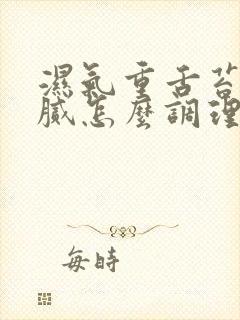 濕氣重舌苔
膩怎麼調理
每時